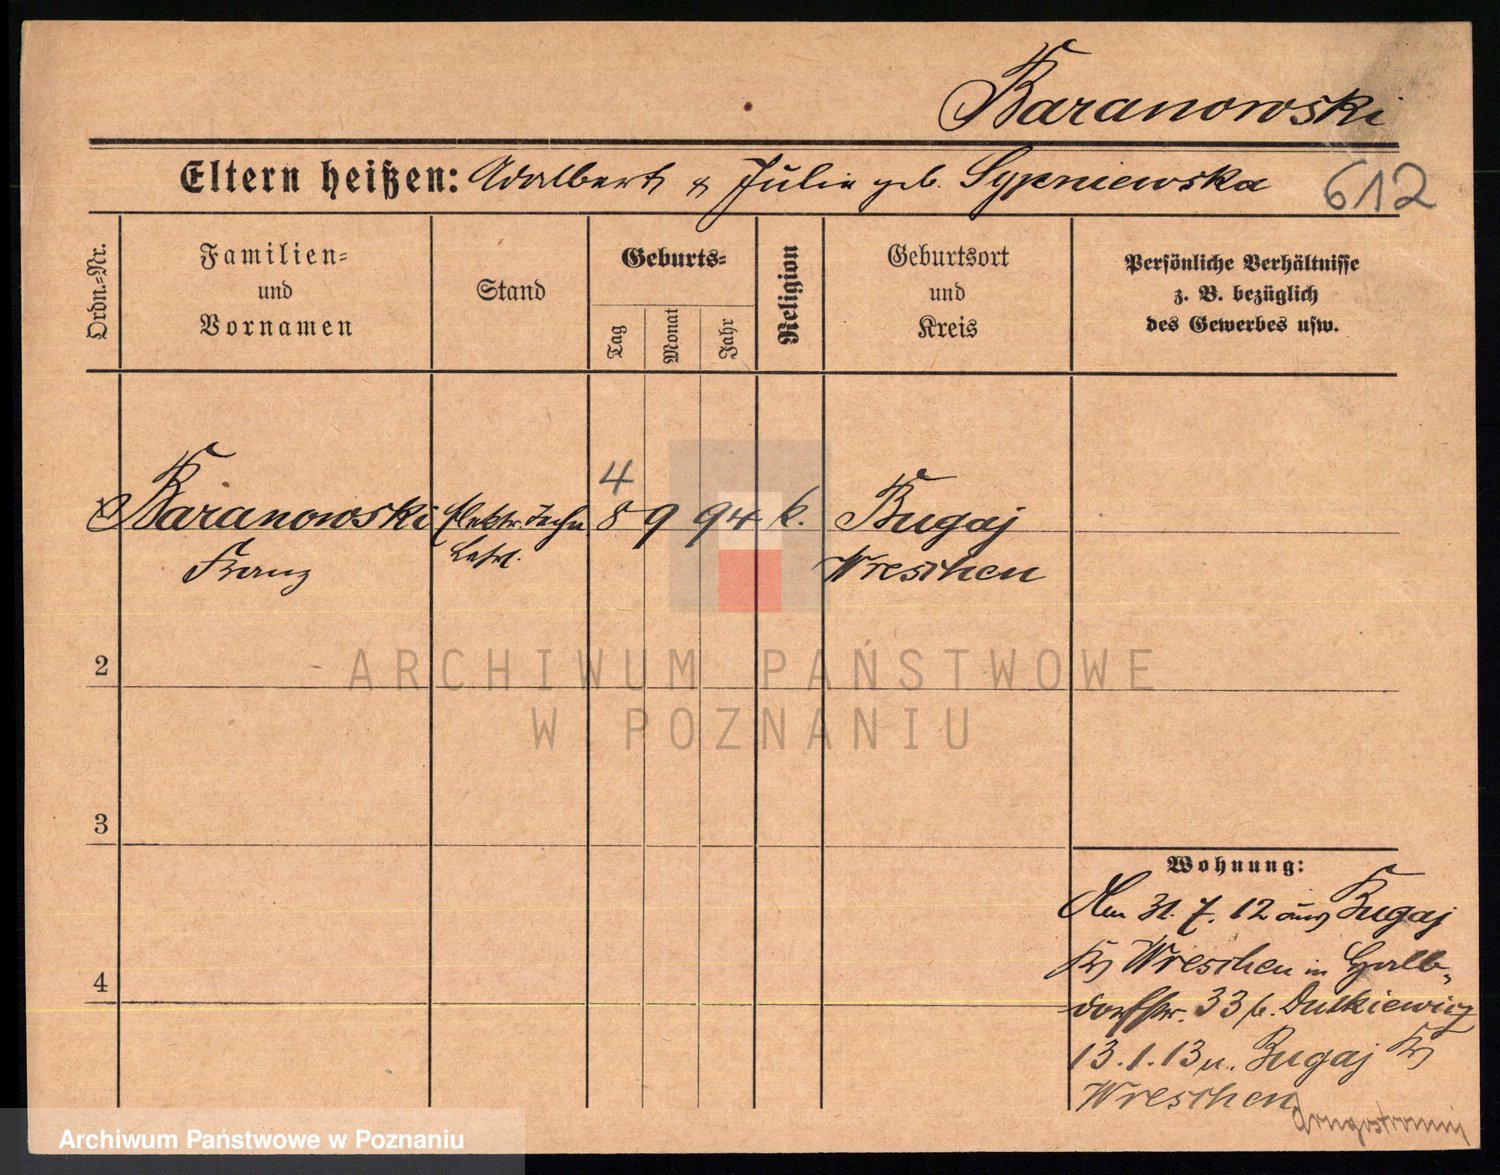 Baranowski
Eltern heißen: Adalbert & Julie geb. Sypniewska 612
Ordn.-Nr.
Familien- und Vornamen
Stand
Geburts-
Tag
Monat
Jahr
Religion
Geburtsort und Kreis
Persönliche Verhältnisse
z. B. bezüglich
des Gewerbes usw.
4
1 Baranowski Elektr. Techn. 8 9 94 k. Bugaj
Franz Lehrl. Wreschen
2
ARCHIWUM PAŃSTWOWE
W POZNANIU
3
Wohnung:
Am 31. 7. 12 aus Bugaj
4
Kr Wreschen in Halb-
dorfstr. 33 b. Dutkiewicz
13.1.13 n. Bugaj Kr
Wreschen
Archiwum Państwowe w Poznaniu